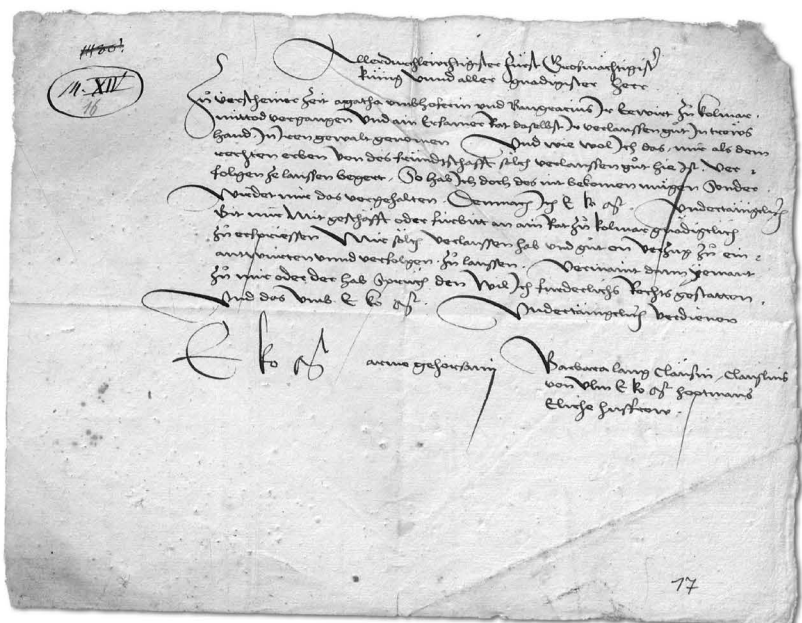 M. XII
16
Allerdurchleichtigister Fürst Grosmächtigist
künig vnnd aller gnädigister Herr
Zu verschiner Zeit agatha und Ir Eewirt zu kolmar
mittod vergangen Vnd ain Ersamer Rat daselbst Ir verlaussen gut In trews
hand In iren gewalt genomen Vnd wie wol Ich das, mir als dem
rechten erben von des freindtschafft sölich verlaussen gut hie Ist ver
folgen ze laussen begert, So hab Ich doch das nit bekomen mügen Sonder
Wirdet mir das vorgehalten Demnach Ich E ko Mt Vndertäniglich
Bit mir mit geschäfft oder fürbitt an ain Rat zu kolmar gnädiglich
zu erspriessen Mir sölich verlaussen hab vnd gut on verzug zu ein
antwurten vnnd verfolgen zu laussen Vermaint dann yemant
zu mir oder der hab Sprüch den Wil Ich fürderlichs Rechts gestatten
Vnd das vmb E ko Mt Vndertäniglich verdienen
E ko Mt arme gehorsami
Barbara lang
von vlm E ko Mt hoptmans
Eliche husfrow
17